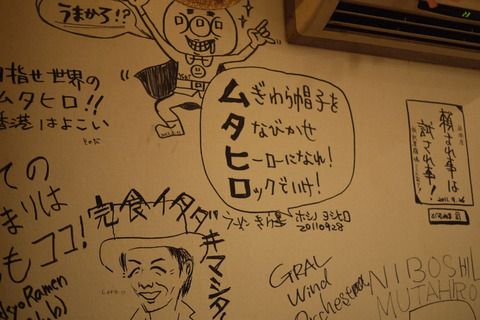 うまかろ!?
目指せ世界の
ムタヒロ!!
香港はよこい
ムぎわら帽子を
タなびかせ
ヒーローになれ!
ロックでいけ!
ラーメン
ホシノ ヨシヒロ
20110928
頼まれ事は
試され事!
2011.9.26
ての
まりは
もココ!
kyoRamen
lub)
完食イタダキマシタ
GRAL
Wind
Orchestra
NIBOSHI
MUTAHIRO